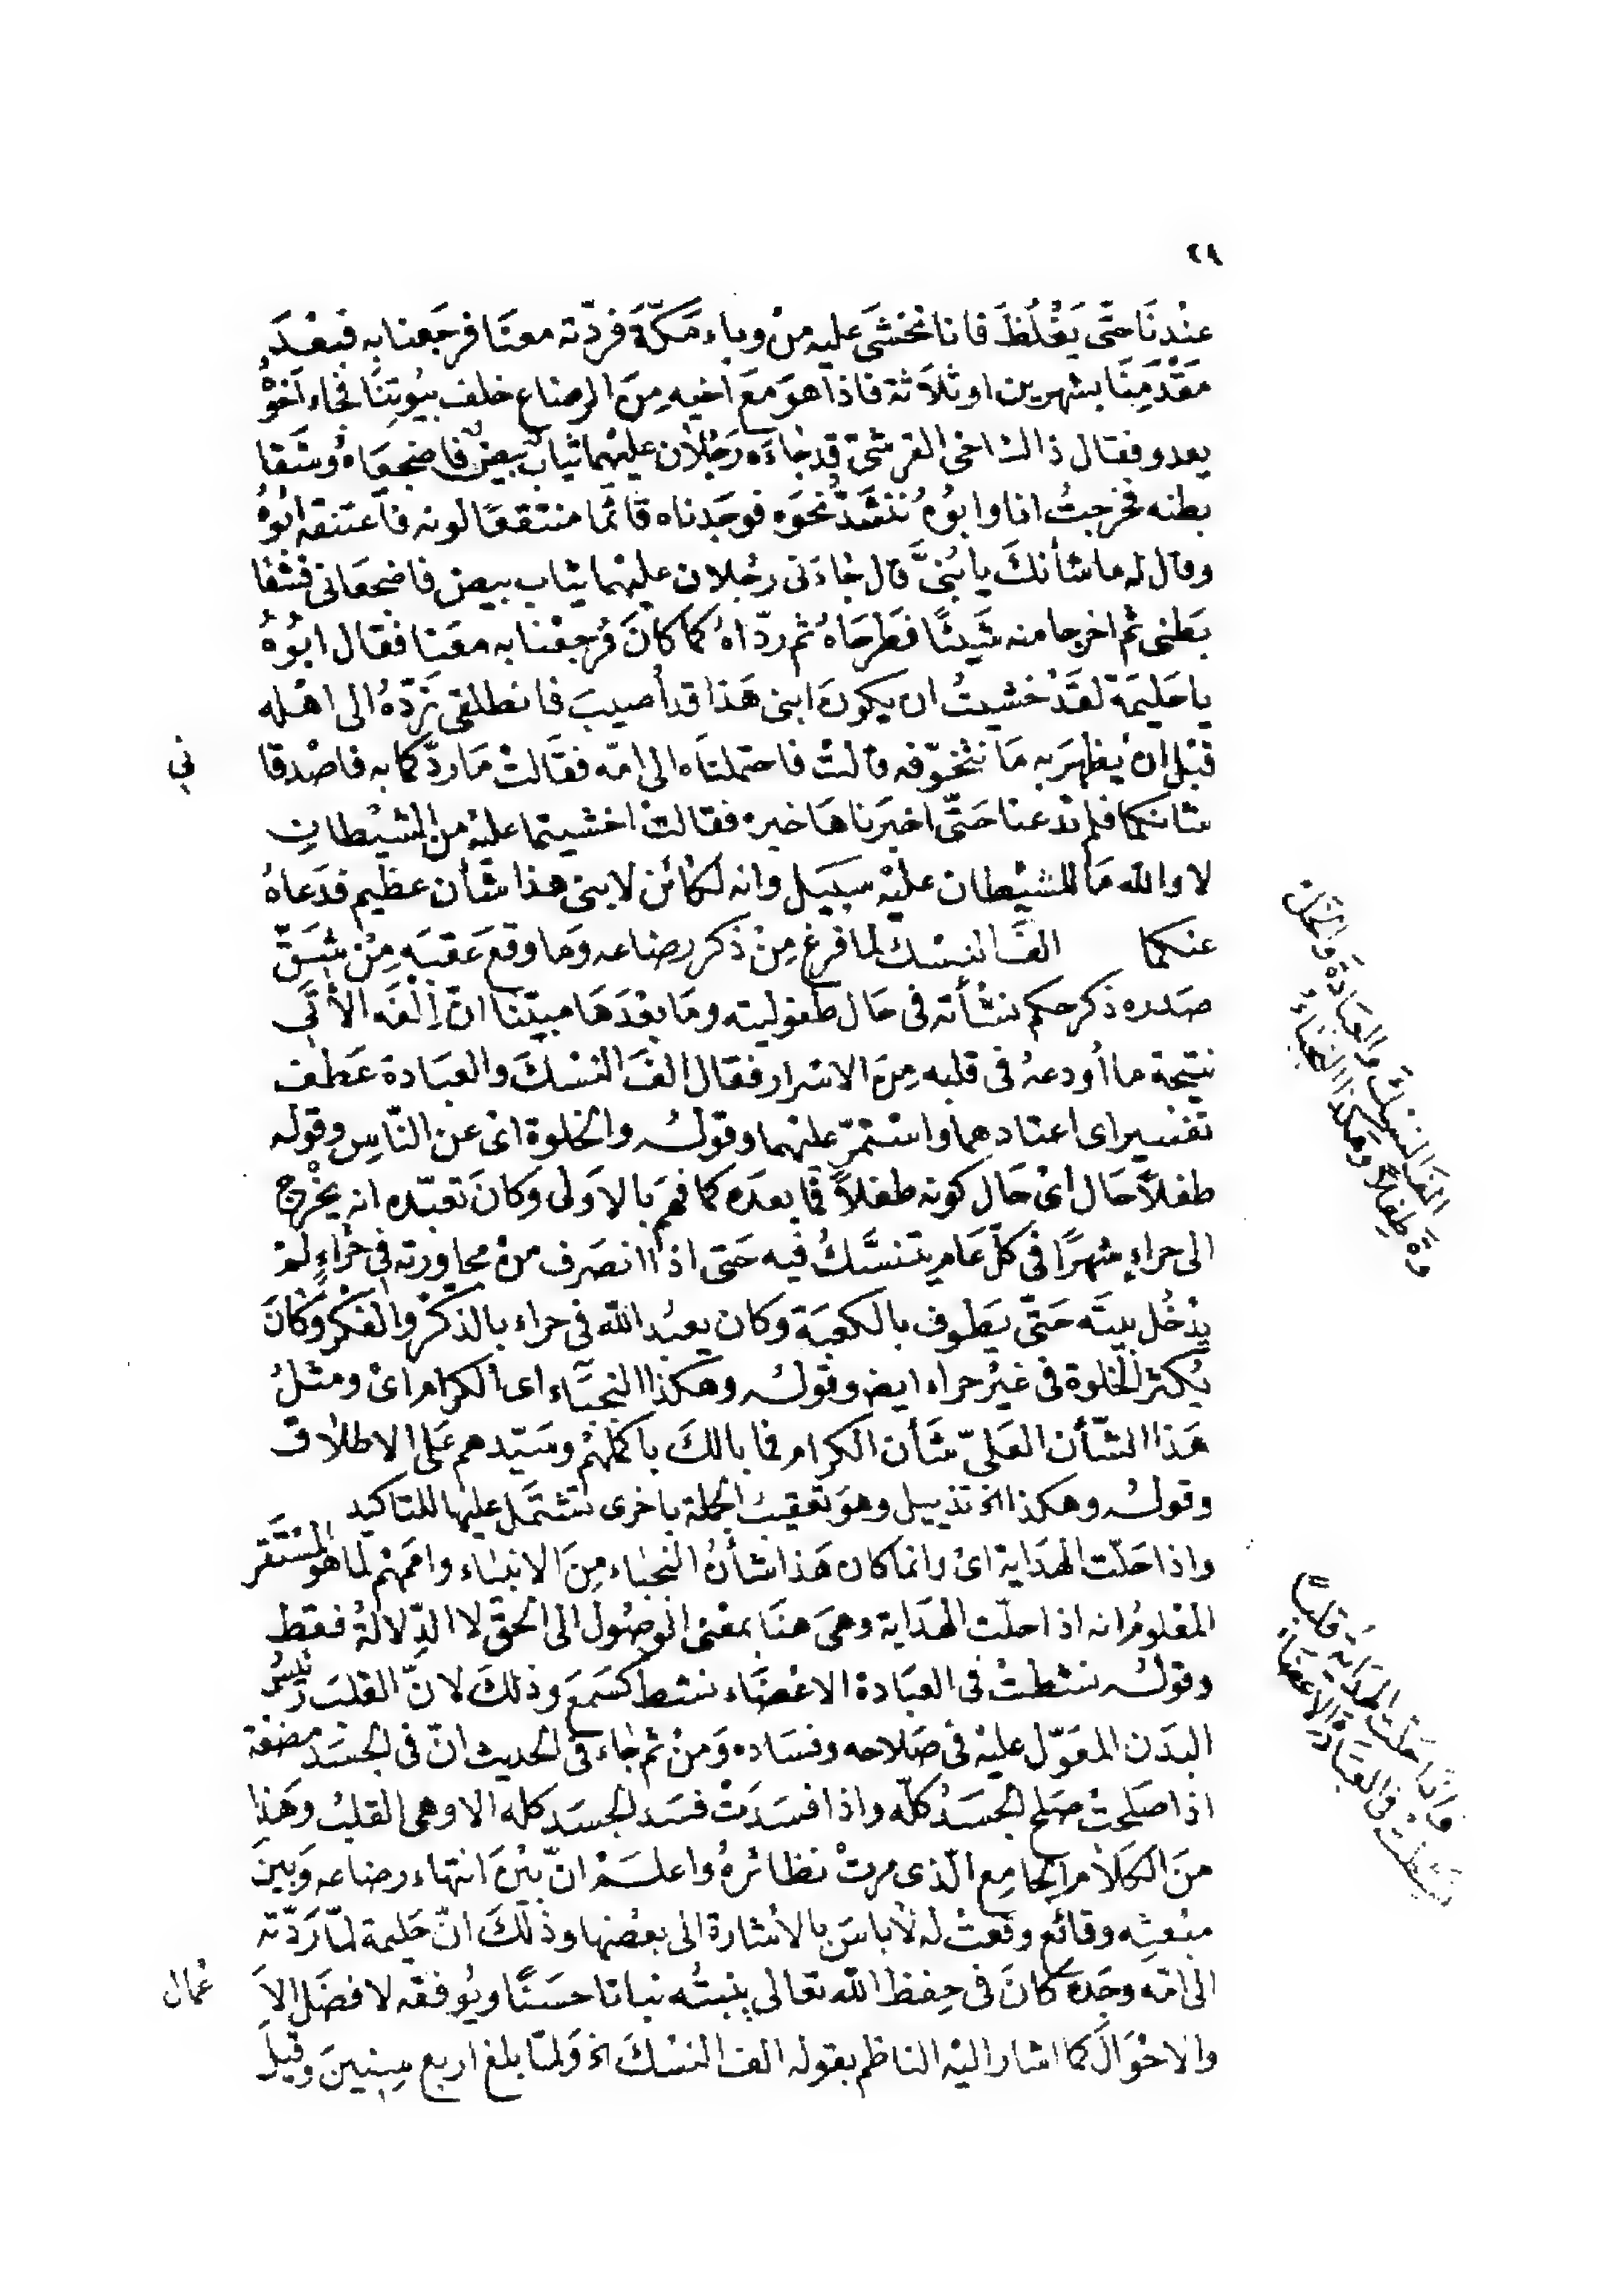 ٢٩
عنْدنَا حتّى يَغْلُظَ فانا نخشَى عليه منْ وباء مَكّةَ فردّته معنَا فرجَعنا به فبعْدَ
مَقْدَمِنَا بشهرين او ثلاَثة فاذا هوَ معَ اخيه مِنَ الرضاع خلف بيُوتِنَا فجاء اخوْهُ
يعدو فقال ذاك اخى القرشىّ قد جاءَه رَجُلاَن عليْهما ثيابٌ بيضٌ فاضجعَاهُ وشقا
بطنه فخرجتُ انا وابوُهُ نشتَدُّ نحوَه فوجَدناه قائمًا منتقعًا لونه فاعتنقه ابُوهُ
وقال له ما شأنكَ يا بُنىَّ قال جاءَنى رجُلان عليْهما ثياب بيض فاضجعَانى فشقا
بَطنى ثم اخرجا منه شَيئًا فطرحَاهُ ثم ردّاهُ كما كانَ فرجعْنا به معَنا فقال ابوُهُ
يا حَليمَة لقَدْ خشيتُ ان يكونَ ابنى هَذا قد أصيبَ فانطلقى نَردّهُ الى اهْله
قبْل انْ يظهرَ به مَا نتخوّفه قالتْ فاحتملنَاه الى امّه فقالتْ مَا ردّكما به فاصْدقا
نى
شانكما فلم تدعنا حَتّى اخبَرناهَا خبره فقالتْ اخشيتما عليْه من الشيْطانِ
لا والله مَا للشيْطان عليْه سبيَل وانه لكائن لابنى هذا شأن عظيم فدَعاهُ
عنكما الفَ النسْك لما فرغ مِنْ ذكر رضاعه وَما وقعَ عَقبَه مِنْ شَقّ
صَدره ذكر حكم نشأته فى حَال طفوليته ومَا بعْدَهَا مبيّنا انّ اِلفَه الآتَى
نتيجة ما أودعهُ فى قلبه مِنَ الاسْرار فقال الفَ النسْكَ والعبَادة عَطف
تفسيراى اعتادهما واسْتمرّ عليْهما وقولُه والخلوة اىْ عن النّاسِ وقوله
طفلاً حَال اىْ حَال كونه طفلاً فما بعدَه كما فهمَ بالاَولى وَكانَ تعبّده انه يخْرج
الى حراءٍ شهرًا فى كلّ عَامٍ يتنسَّكُ فيه حَتى اذا انصَرف منْ مجاورته فى حراءٍ لَمْ
يدْخُل بيتَه حَتّى يَطوف بالكعبَة وكان يعبُد الله فى حراء بالذكْر والفكْر وَكانَ
يُكثر الخلوة فى غيْر حراء ايض وقولُه وهكذا النجبَاء اى الكرام اىْ ومثلُ
هَذا الشّأن العَلىّ شَأن الكرام فما بالكَ باكملهمْ وسَيّدهم عَلى الاطلاق
وقولُه وهكذا الخ تذييل وهوَ تعقيب الجملة باخرى تشتمَل عليْها للتاكيد
واذا حَلّت الهدَاية اىْ وانما كان هَذا شأنُ النجبَاء مِنَ الانبيَاء واممَهمْ لما هوَ المسْتَقر
المعْلومُ انه اذا حلّت الهدَاية وهىَ هنَا بمعْنى الوصُول الى الحقّ لا الدّلالةُ فقط
وقولُه نشطتْ فى العبَادة الاعْضَاء نشط كسَمعَ وذلكَ لانّ القلبَ رَئيسُ
البدَن المعَوّل عليْه فى صَلاحه وفسَاده وَمنْ ثم جَاء فى الحديث انّ فى الجسَد مضغة
اذا صَلحتْ صَلح الجسَدُ كلّه واذا فسَدَتْ فسَد الجسَد كله الا وهى القلبُ وهَذا
منَ الكلاَم الجامِع الّذى مرتْ نظائرهُ واعلَمْ انّ بيْنَ انتهاء رضاعه وَبينَ
مبْعثِه وقائع وقعَتْ له لا باسَ بالاشارة الى بعْضها وذلكَ انّ حَليمة لمّا رَدّته
الى امّه وجَدّه كانَ فى حِفظ الله تعَالى ينبتُه نباتا حسَنًا ويُوفقه لافضَل الاَ
عْمال
والاحْوَال كما اشار اليْه الناظم بقوله الف النسْكَ الخ وَلمّا بلغ اربع سِنينَ وقيلَ
الفَ النسْكَ والعبَادَة والخَلْ
وةَ طِفلاً وهكذَا النّجبَاءُ
وَاذا حَلّتِ الهدَايَة قلبًا
نَشطتْ فى العبَادةِ الاعضَاءُ